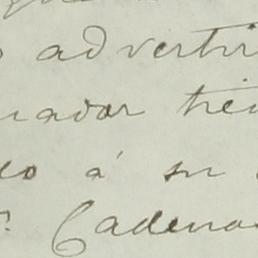 advertir
nador tien
do á su
Cadenas